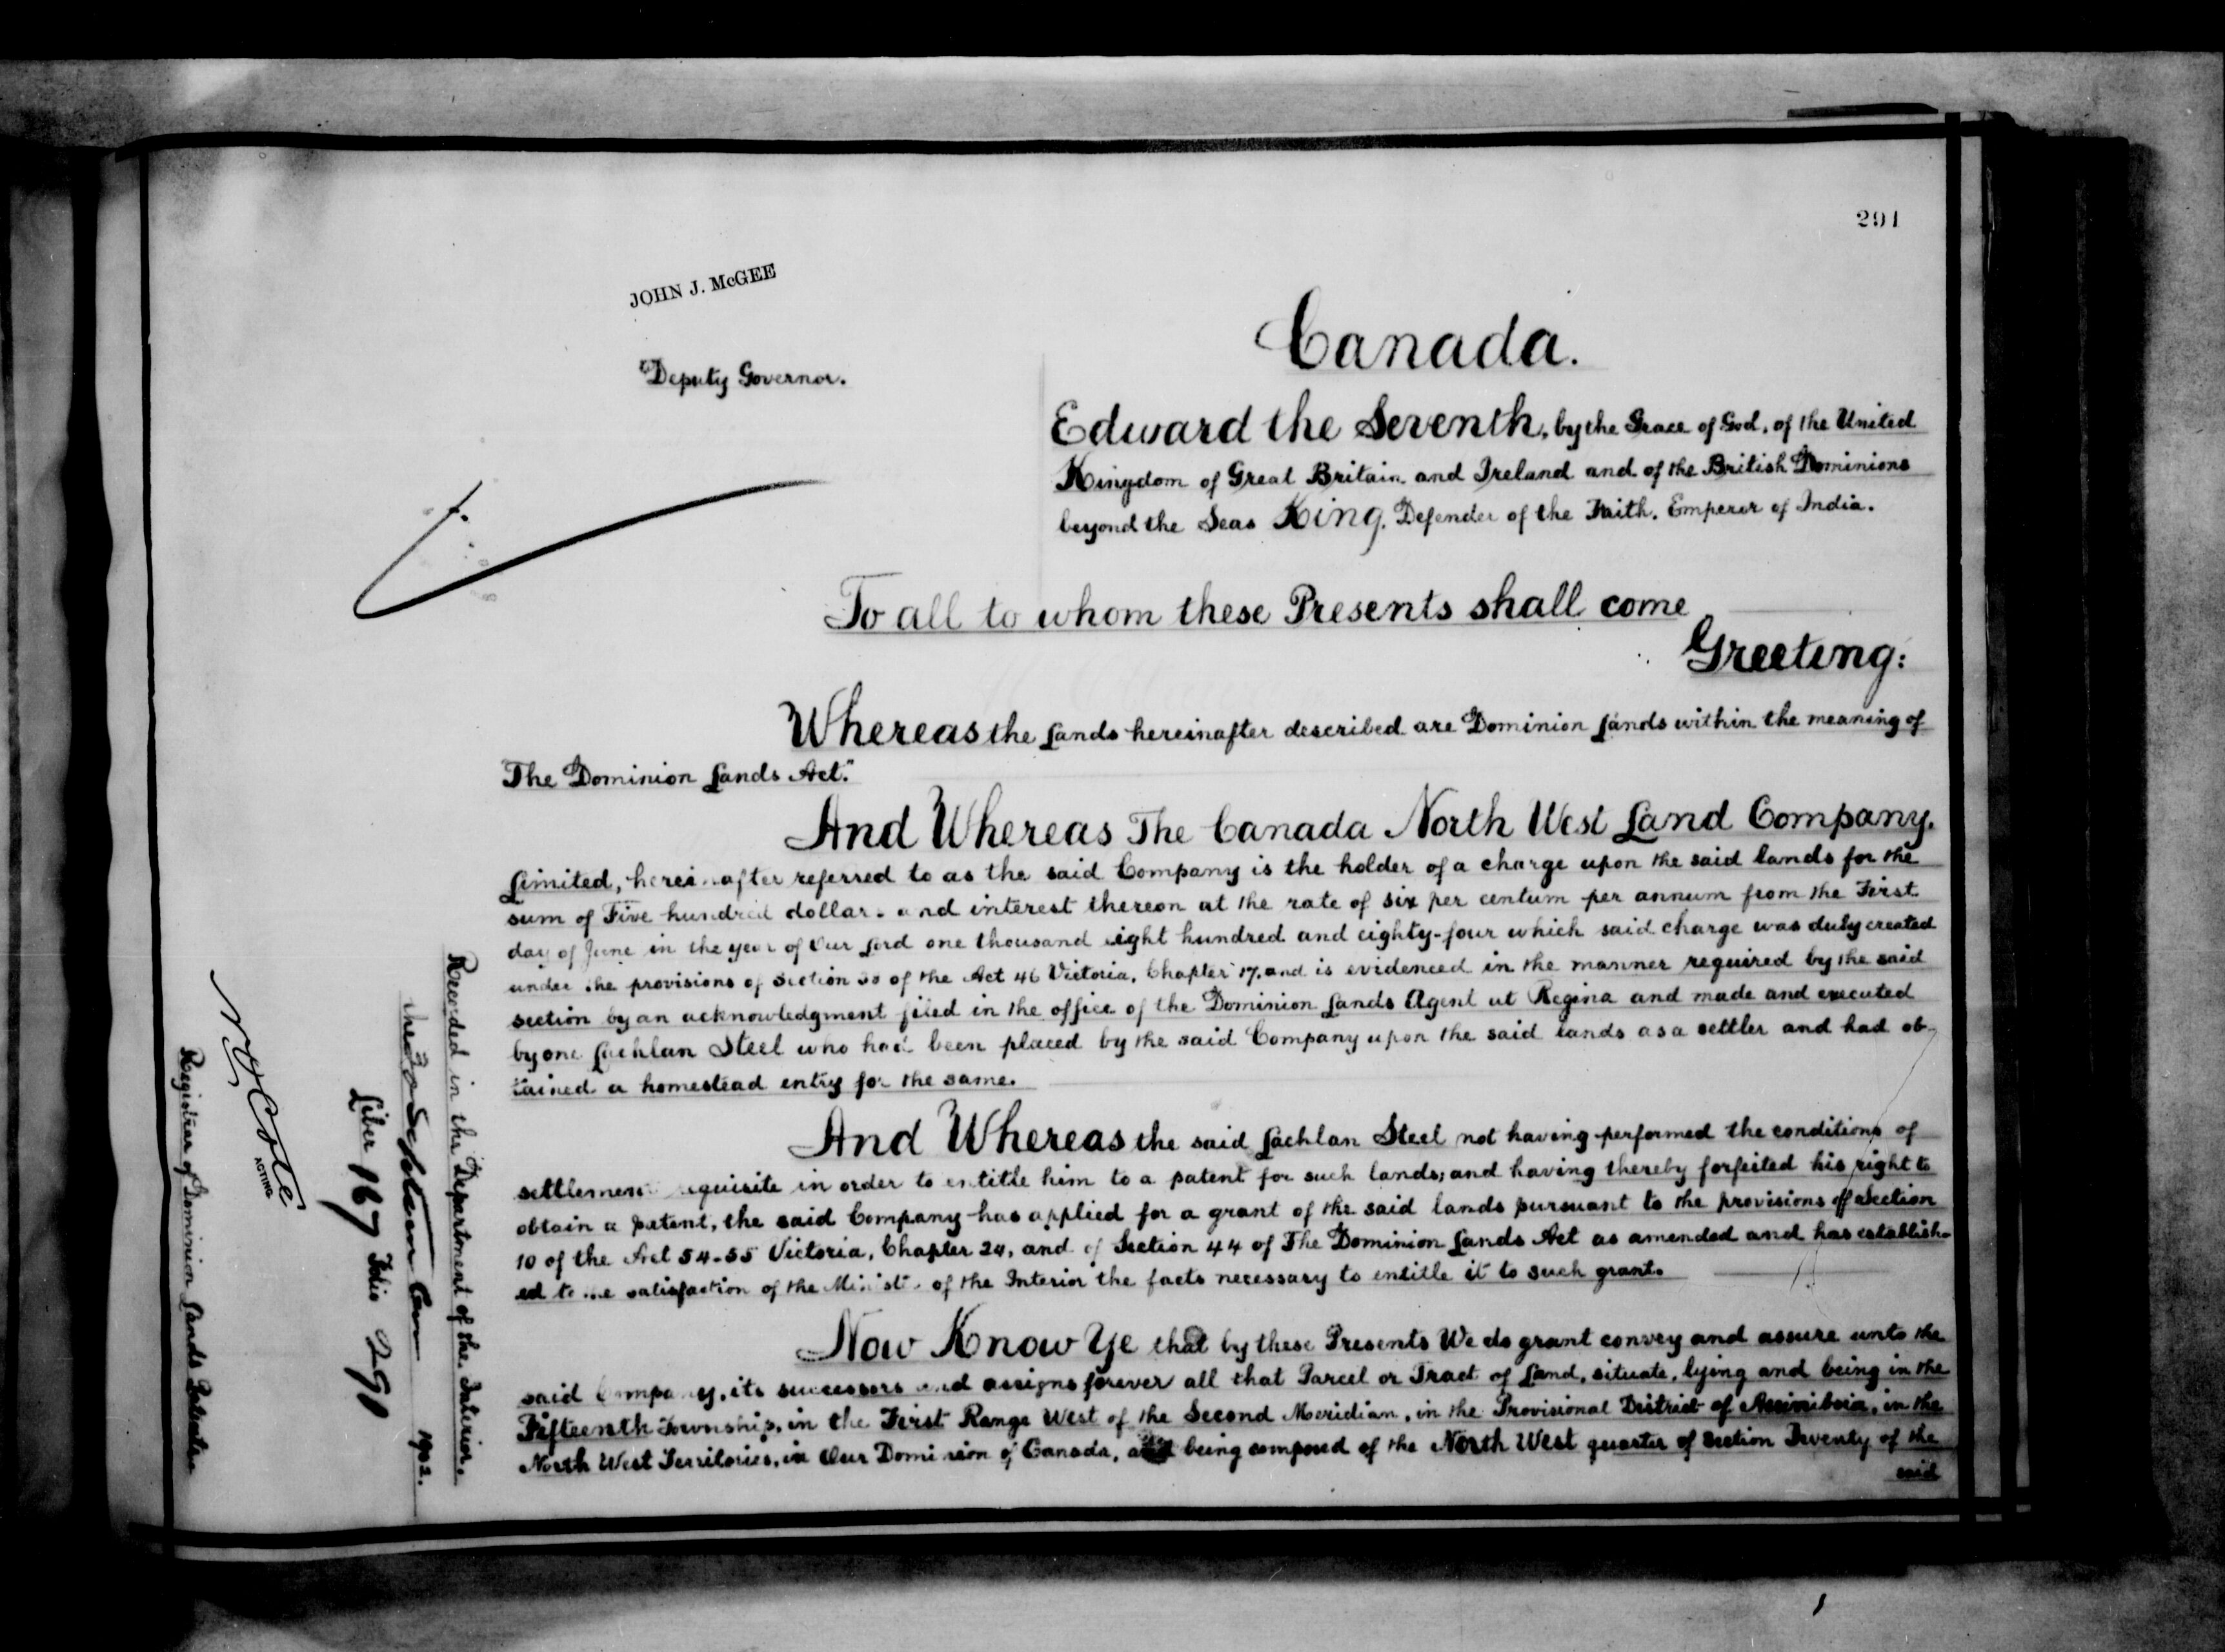 291
JOHN J. McGEE
Deputy Governor.
Canada.
Edward the Seventh, by the Grace of God, of the United
Kingdom of Great Britain and Ireland and of the British Dominions
beyond the Seas King, Defender of the Faith, Emperor of India.
To all to whom these Presents shall come
Greeting:
Whereas the Lands hereinafter described are Dominion Lands within the meaning of
"The Dominion Lands Act."
And Whereas The Canada North West Land Company,
Limited, hereinafter referred to as the said Company is the holder of a charge upon the said lands for the
sum of Five hundred dollars and interest thereon at the rate of six per centum per annum from the First
day of June in the year of Our Lord one thousand eight hundred and eighty-four which said charge was duly created
under the provisions of Section of the Act 46 Victoria, Chapter 17, and is evidenced in the manner required by the said
section by an acknowledgment filed in the office of the Dominion Lands Agent at Regina and made and executed
by one Lachlan Steel who had been placed by the said Company upon the said lands as a settler and had ob-
tained a homestead entry for the same.
And Whereas the said Lachlan Steel not having performed the conditions of
settlement requisite in order to entitle him to a patent for such lands; and having thereby forfeited his right to
obtain a patent, the said Company has applied for a grant of the said lands pursuant to the provisions of Section
10 of the Act 54-55 Victoria, Chapter 24, and of Section 44 of The Dominion Lands Act as amended and has establish-
ed to the satisfaction of the Minister of the Interior the facts necessary to entitle it to such grant.
Now Know Ye that by these Presents We do grant convey and assure unto the
said Company, its successors and assigns forever all that Parcel or Tract of Land, situate, lying and being in the
Fifteenth Township, in the First Range West of the Second Meridian, in the Provisional District of Assiniboia, in the
North West Territories, in Our Dominion of Canada, and being composed of the North West quarter of Section Twenty of the
said
Recorded in the Department of the Interior.
this 30 September 1902.
Liber 167 Folio 290
N O Cote
ACTING
Registrar of Dominion Lands Patents